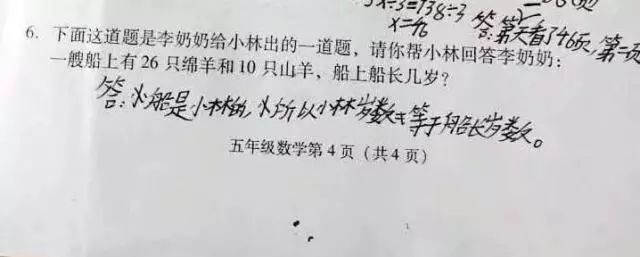 x÷3=138÷3
x=46
答:第一天看了46页,第二页
6. 下面这道题是李奶奶给小林出的一道题,请你帮小林回答李奶奶:
一艘船上有 26 只绵羊和 10 只山羊,船上船长几岁?
答:船是小林的,所以小林岁数等于船长岁数。
五年级数学第 4 页(共 4 页)